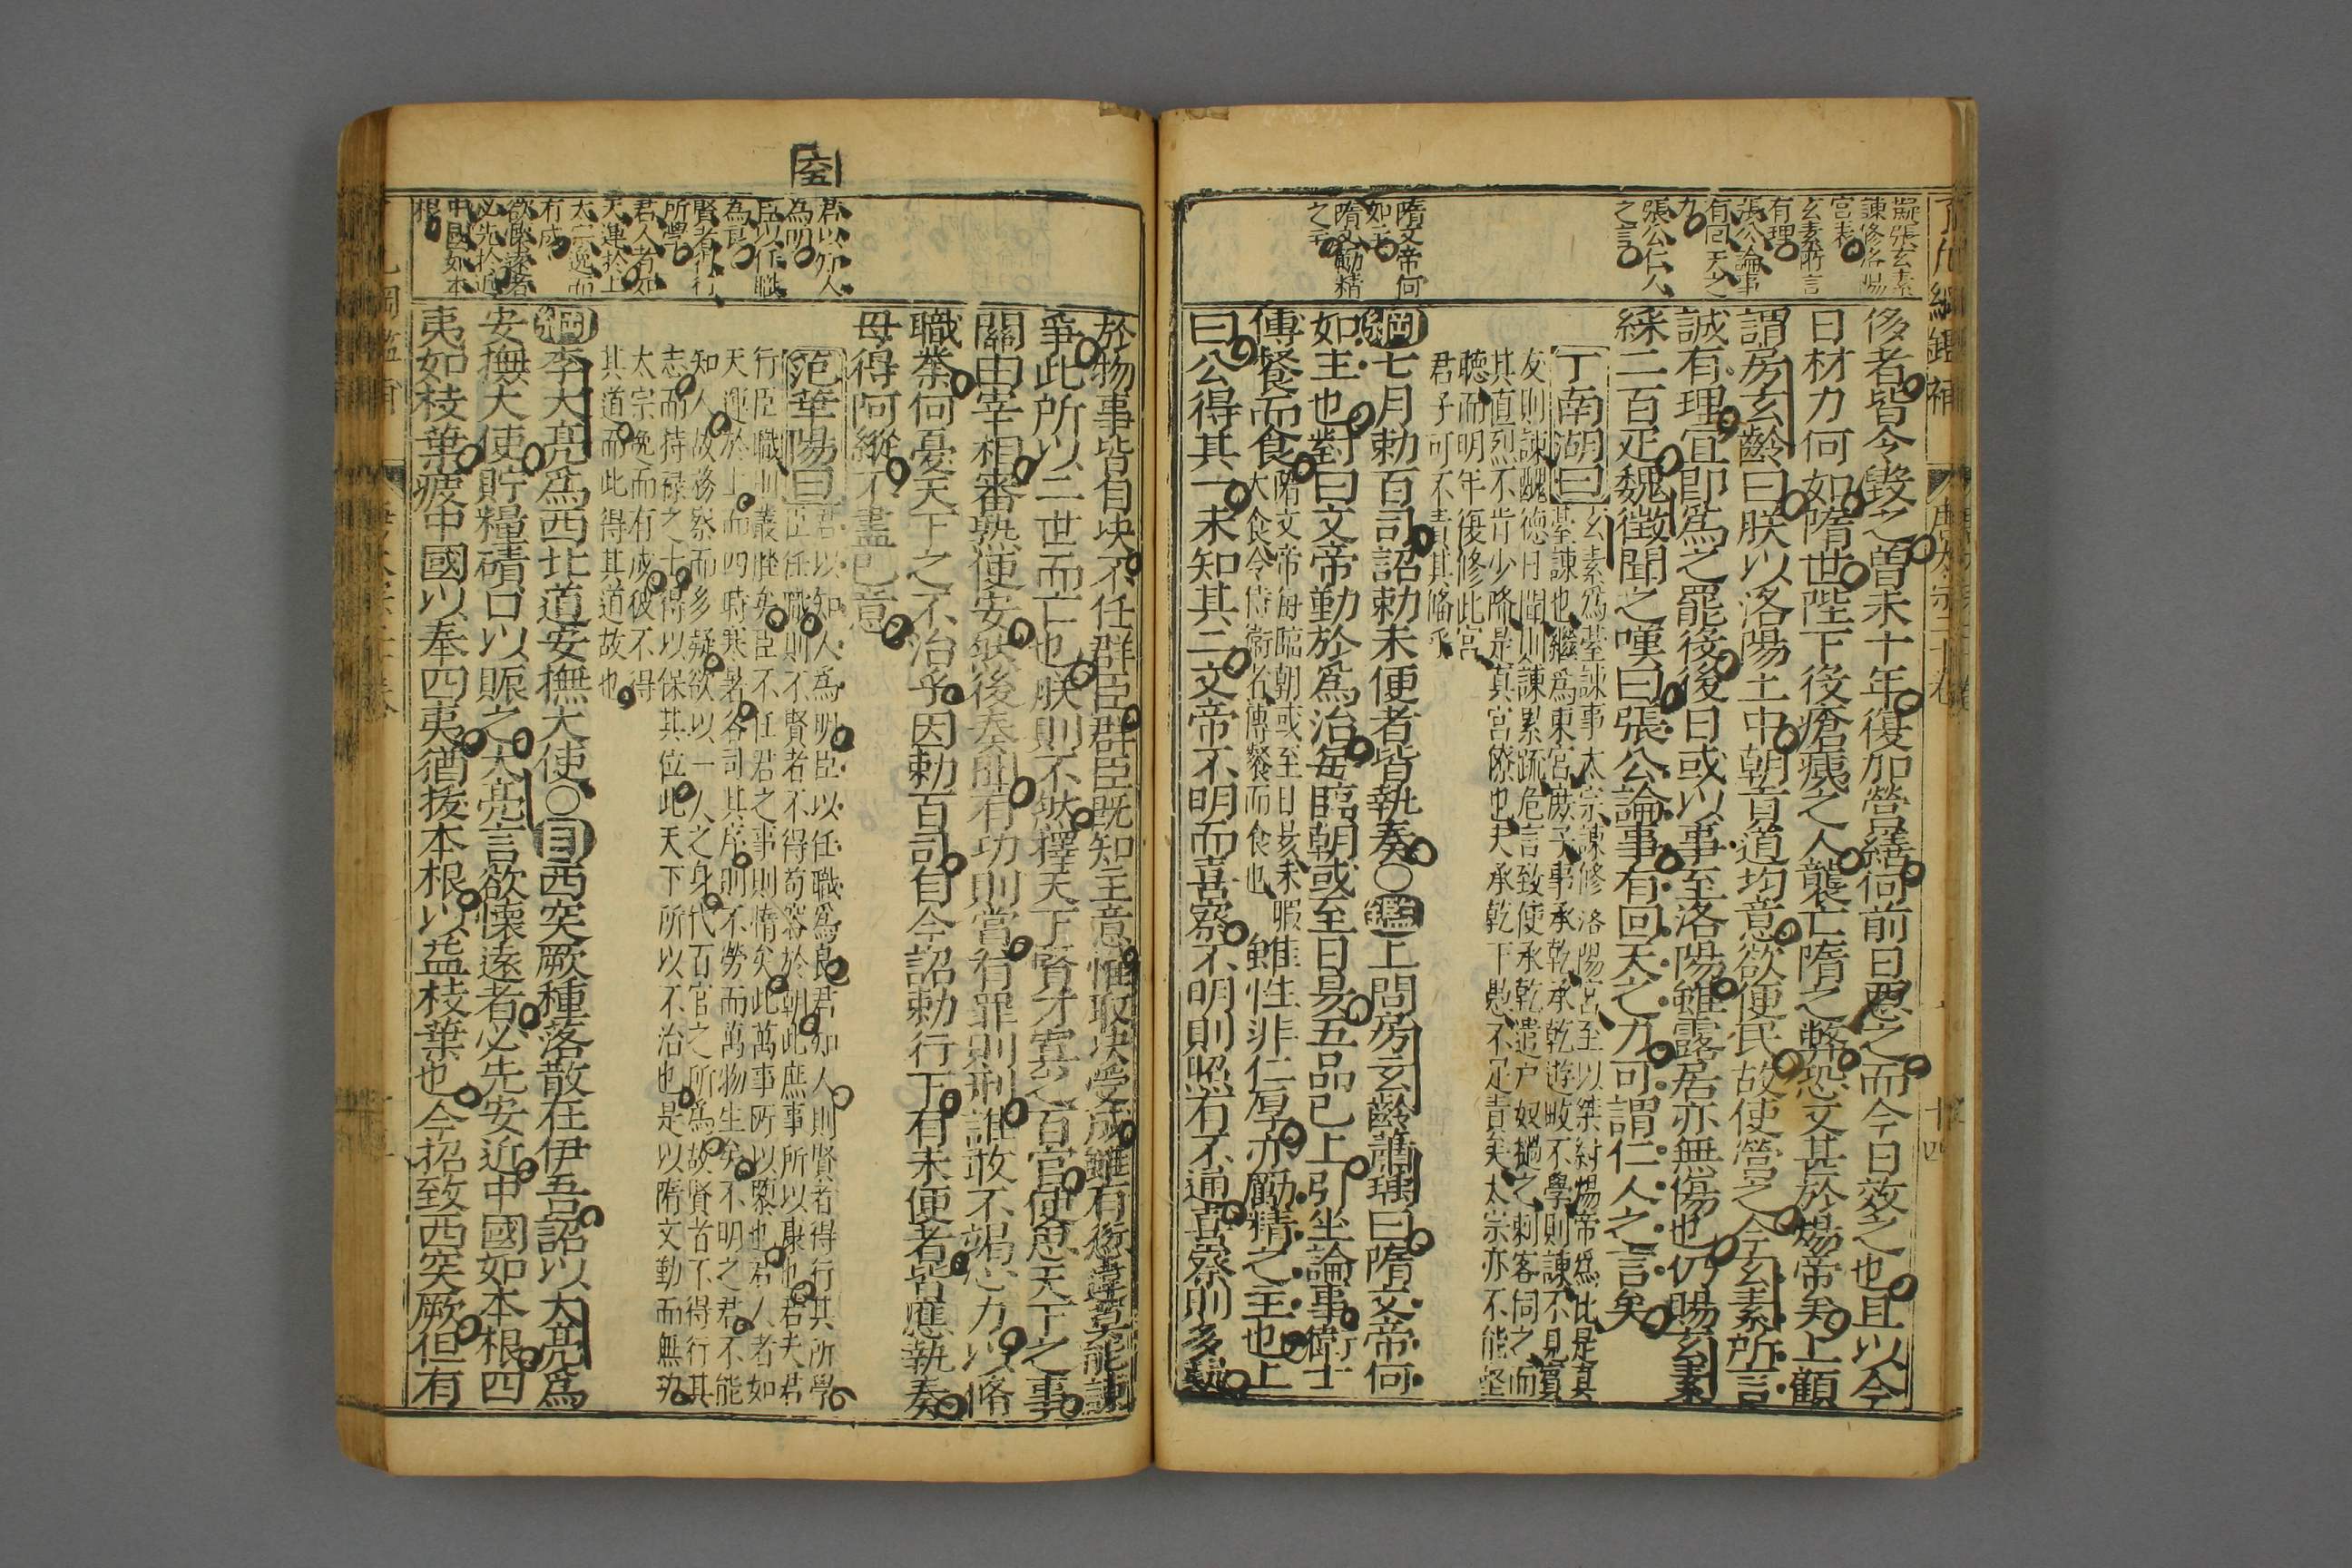 了凡綱鑑補
唐太宗二十卷
十四
擬張玄素
諫修洛陽
宮表
玄素所言
有理
張公論事
有回天之
力
張公仁人
之言
隋文帝何
如主
隋文勵精
之主
侈者皆令毀之曽未十年復加營繕何前日惡之而今日效之也且以今
日材力何如隋世陛下役瘡痍之人襲亡隋之弊恐又甚於煬帝矣上顧
謂房玄齡曰朕以洛陽土中朝貢道均意欲便民故使營之今玄素所言
誠有理宜即爲之罷役後日或以事至洛陽雖露居亦無傷也仍賜玄素
綵二百疋魏徵聞之嘆曰張公論事有回天之力可謂仁人之言矣
丁南湖曰玄素爲臺諫事太宗諫修洛陽宮至以桀紂煬帝爲比是真
臺諫也繼爲東宮庶子事承乾承乾遊畋不學則諫不見賓
友則諫醜德日聞則諫累疏危言致使承乾遣户奴撾之刺客伺之而
其直烈不肯少降是真宮僚也夫承乾下愚不足責矣太宗亦不能堅
聽而明年復修此宮
君子可不責其俻乎
綱七月勅百司詔勅未便者皆執奏〇鑑上問房玄齡蕭瑀曰隋文帝何
如主也對曰文帝勤於爲治每臨朝或至日昃五品已上引坐論事衛士
傳餐而食隋文帝每臨朝或至日昃未暇
大食令侍衛者傳餐而食也雖性非仁厚亦勵精之主也上
曰公得其一未知其二文帝不明而喜察不明則照有不通喜察則多疑
君以知人
為明
臣以任職
為良
賢者得行
所學
君人者如
天運於上
太宗逸而
有成
欲懷遠者
必先於近
中國如本
根
於物事皆自決不任群臣群臣既知主意惟取決受成雖有愆違莫敢諫
爭此所以二世而亡也朕則不然擇天下賢才寘之百官使思天下之事
關由宰相審熟便安然後奏聞有功則賞有罪則刑誰敢不竭心力以脩
職業何憂天下之不治乎因勅百司自今詔勅行下有未便者皆應執奏
毋得阿縱不盡已意
范華陽曰君以知人爲明臣以任職爲良君知人則賢者得行其所學
臣任職則不賢者不得苟容於朝此庶事所以康也若夫君
行臣職則叢脞矣臣不任君之事則惰矣此萬事所以隳也君人者如
天運於上而四時寒暑各司其序則不勞而萬物生矣不明之君不能
知人故務察而多疑欲以一人之身代百官之所爲故賢者不得行其
志而持禄之士得以保其位此天下所以不治也是以隋文勤而無功
太宗逸而有成彼不得
其道而此得其道故也
綱李大亮爲西北道安撫大使〇目西突厥種落散在伊吾詔以大亮爲
安撫大使貯糧磧口以賑之大亮言欲懷遠者必先安近中國如本根四
夷如枝葉疲中國以奉四夷猶拔本根以益枝葉也今招致西突厥但有